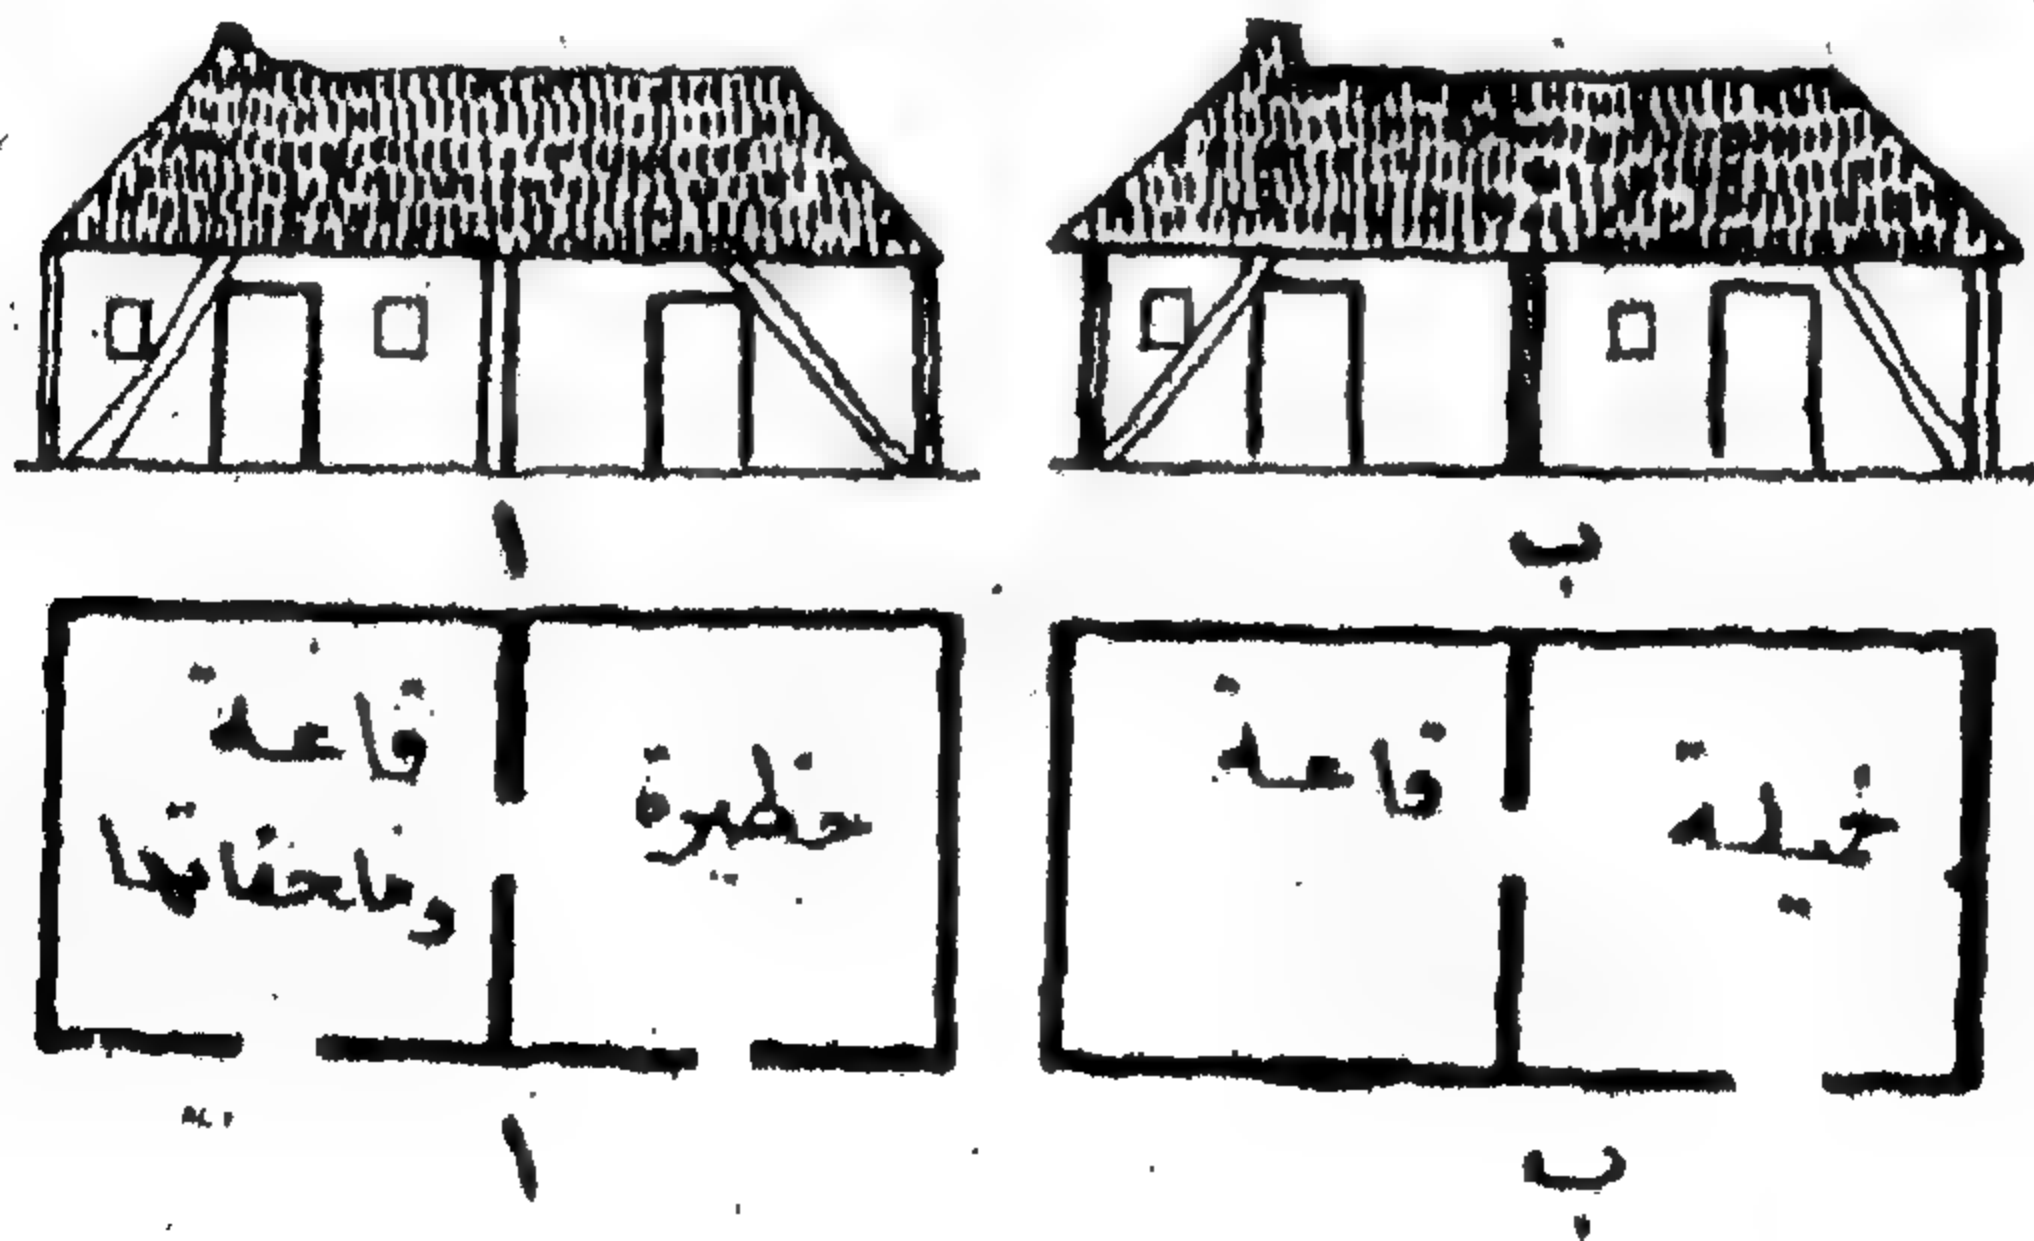 ا
ب
قاعة
وملحقاتها
حظيرة
قاعة
ا
ب